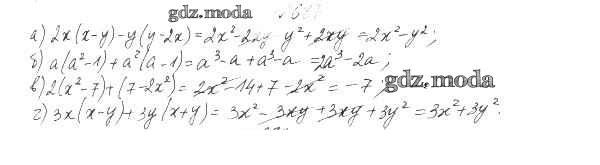 gdz.moda
а) 2x(x-y)-y(y-2x)=2x²-2xy y²+2xy=2x²-y²;
б) a(a²-1)+a²(a-1)=a³-a+a³-a=2a³-2a;
в) 2(x²-7)+(7-2x²)=2x²-14+7-2x²=-7; gdz.moda
г) 3x(x-y)+3y(x+y)=3x²-3xy+3xy+3y²=3x²+3y².